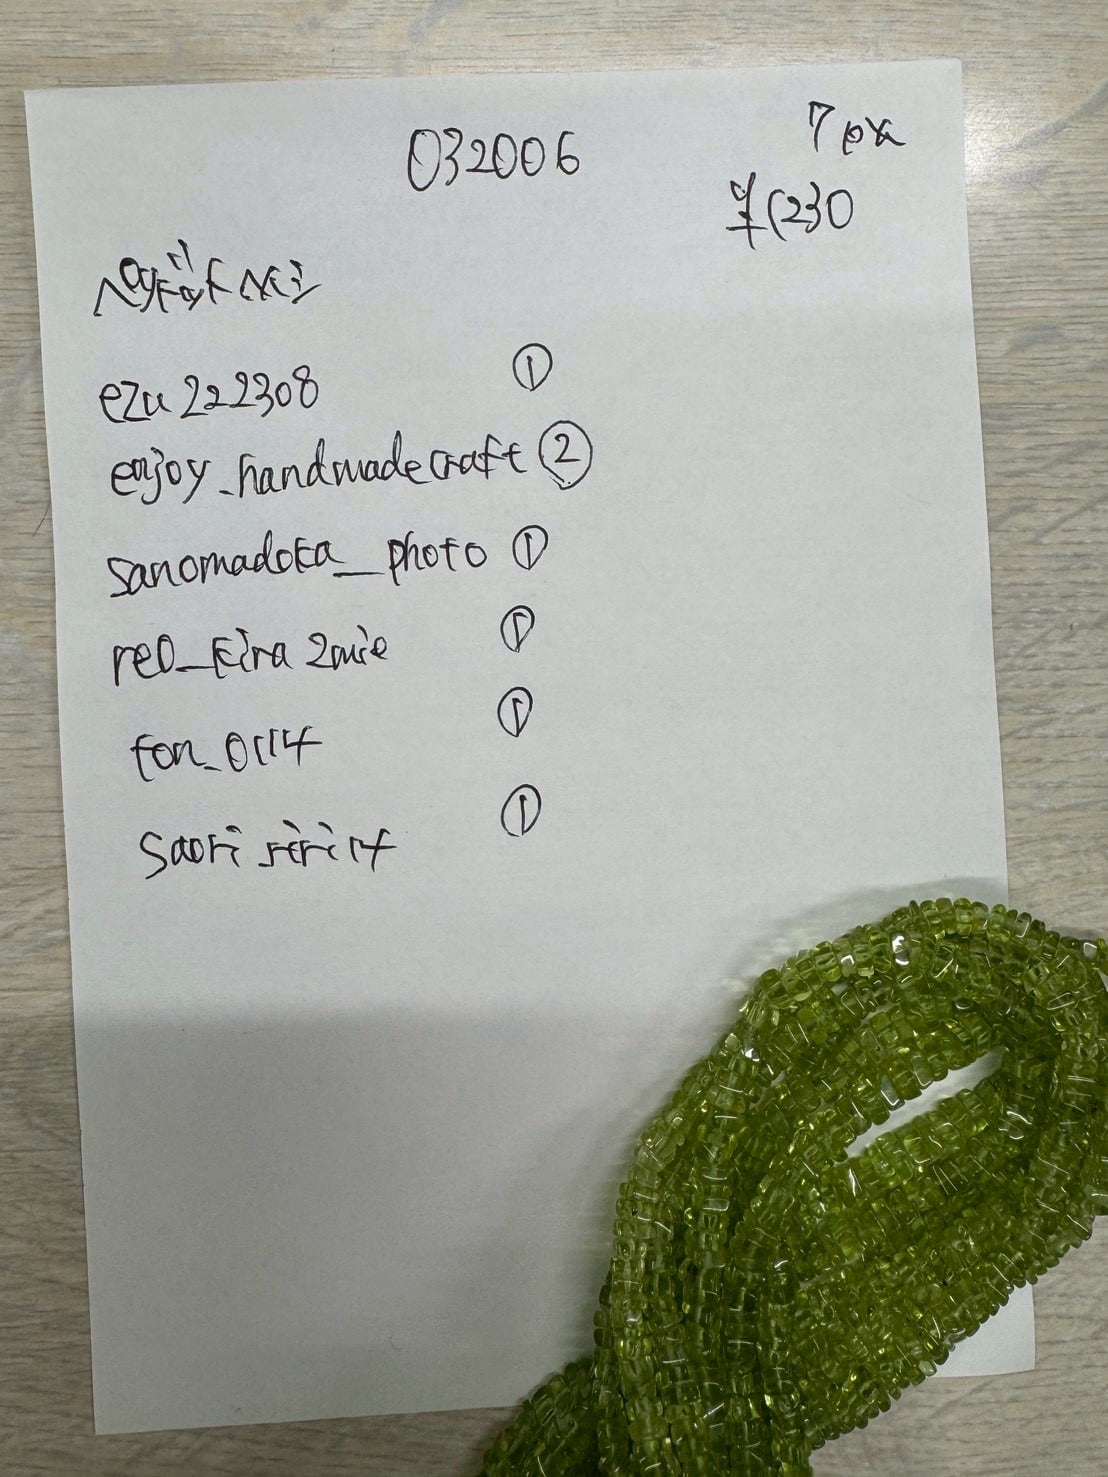 032006
7 pcs
¥1230
ezu222308 ①
enjoy_handmadecraft ②
sanomadoka_photo ①
reo_kira2mie ①
ton_0114 ①
saoririri14 ①